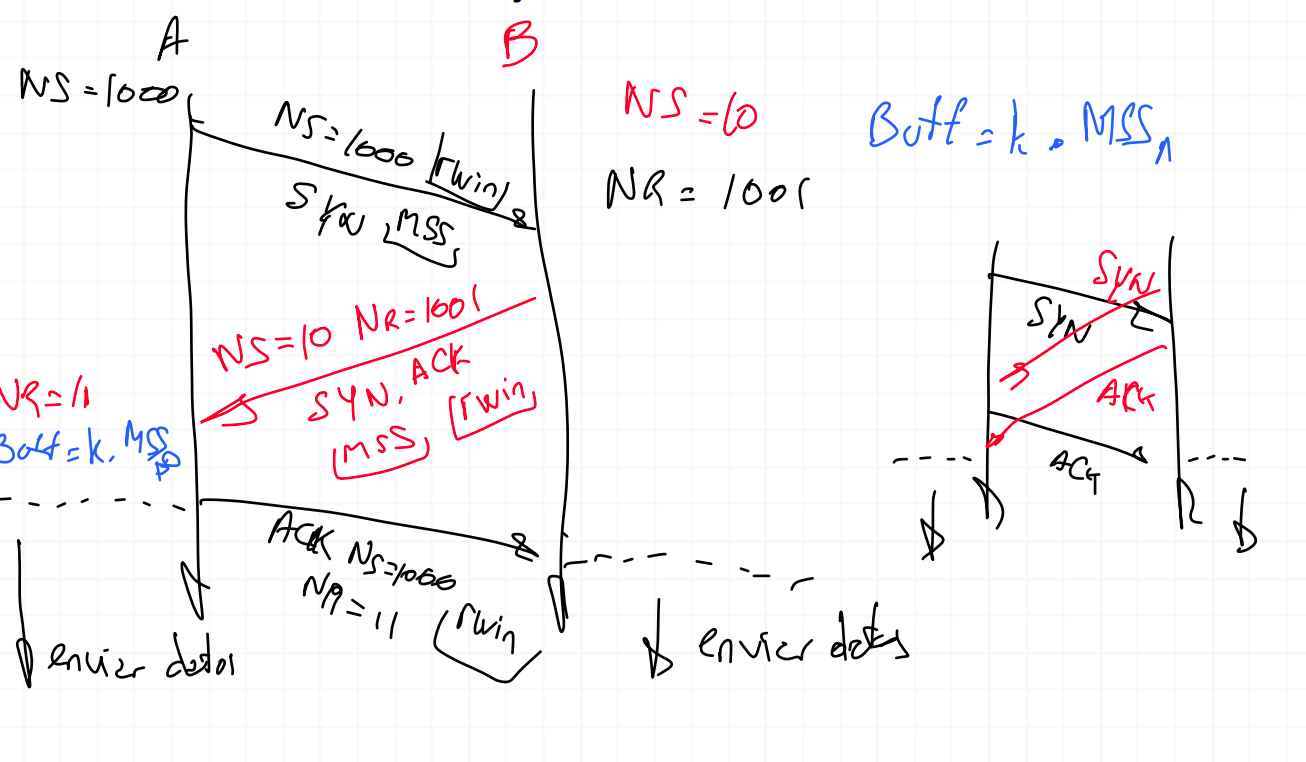 A
B
NS=1000
NS=1000 rwin
SYN MSS
NS=10
NR=1001
Buff=k.MSS_A
NS=10 NR=1001
SYN, ACK
MSS rwin
NR=11
Buff=k.MSS_B
ACK NS=1000
NR=11 rwin
enviar datos
enviar datos
SYN
SYN
ACK
ACK